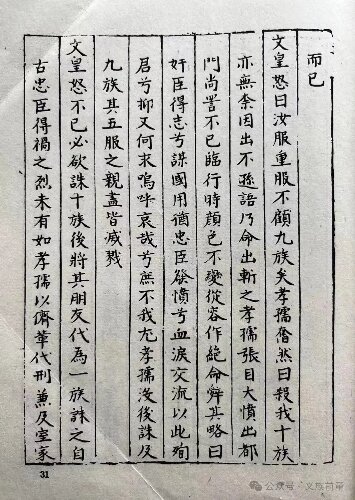 而已
文皇怒曰汝服重服不顧九族矣孝孺奮然曰殺我十族
亦無柰因出不遜語乃命出斬之孝孺張目大憤出都
門尚詈不已臨行時顏色不變從容作絶命辭其略曰
奸臣得志兮謀國用猶忠臣發憤兮血淚交流以此殉
君兮抑又何求嗚呼哀哉兮庶不我尤孝孺沒後誅及
九族其五服之親盡皆滅戮
文皇怒不已必欲誅十族後將其朋友代為一族誅之自
古忠臣得禍之烈未有如孝孺以儕軰代刑蕙及室家
31
公众号·义族前辈